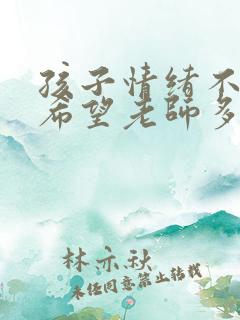 孩子情绪不
希望老師多
林亦秋
未任同意禁止转载